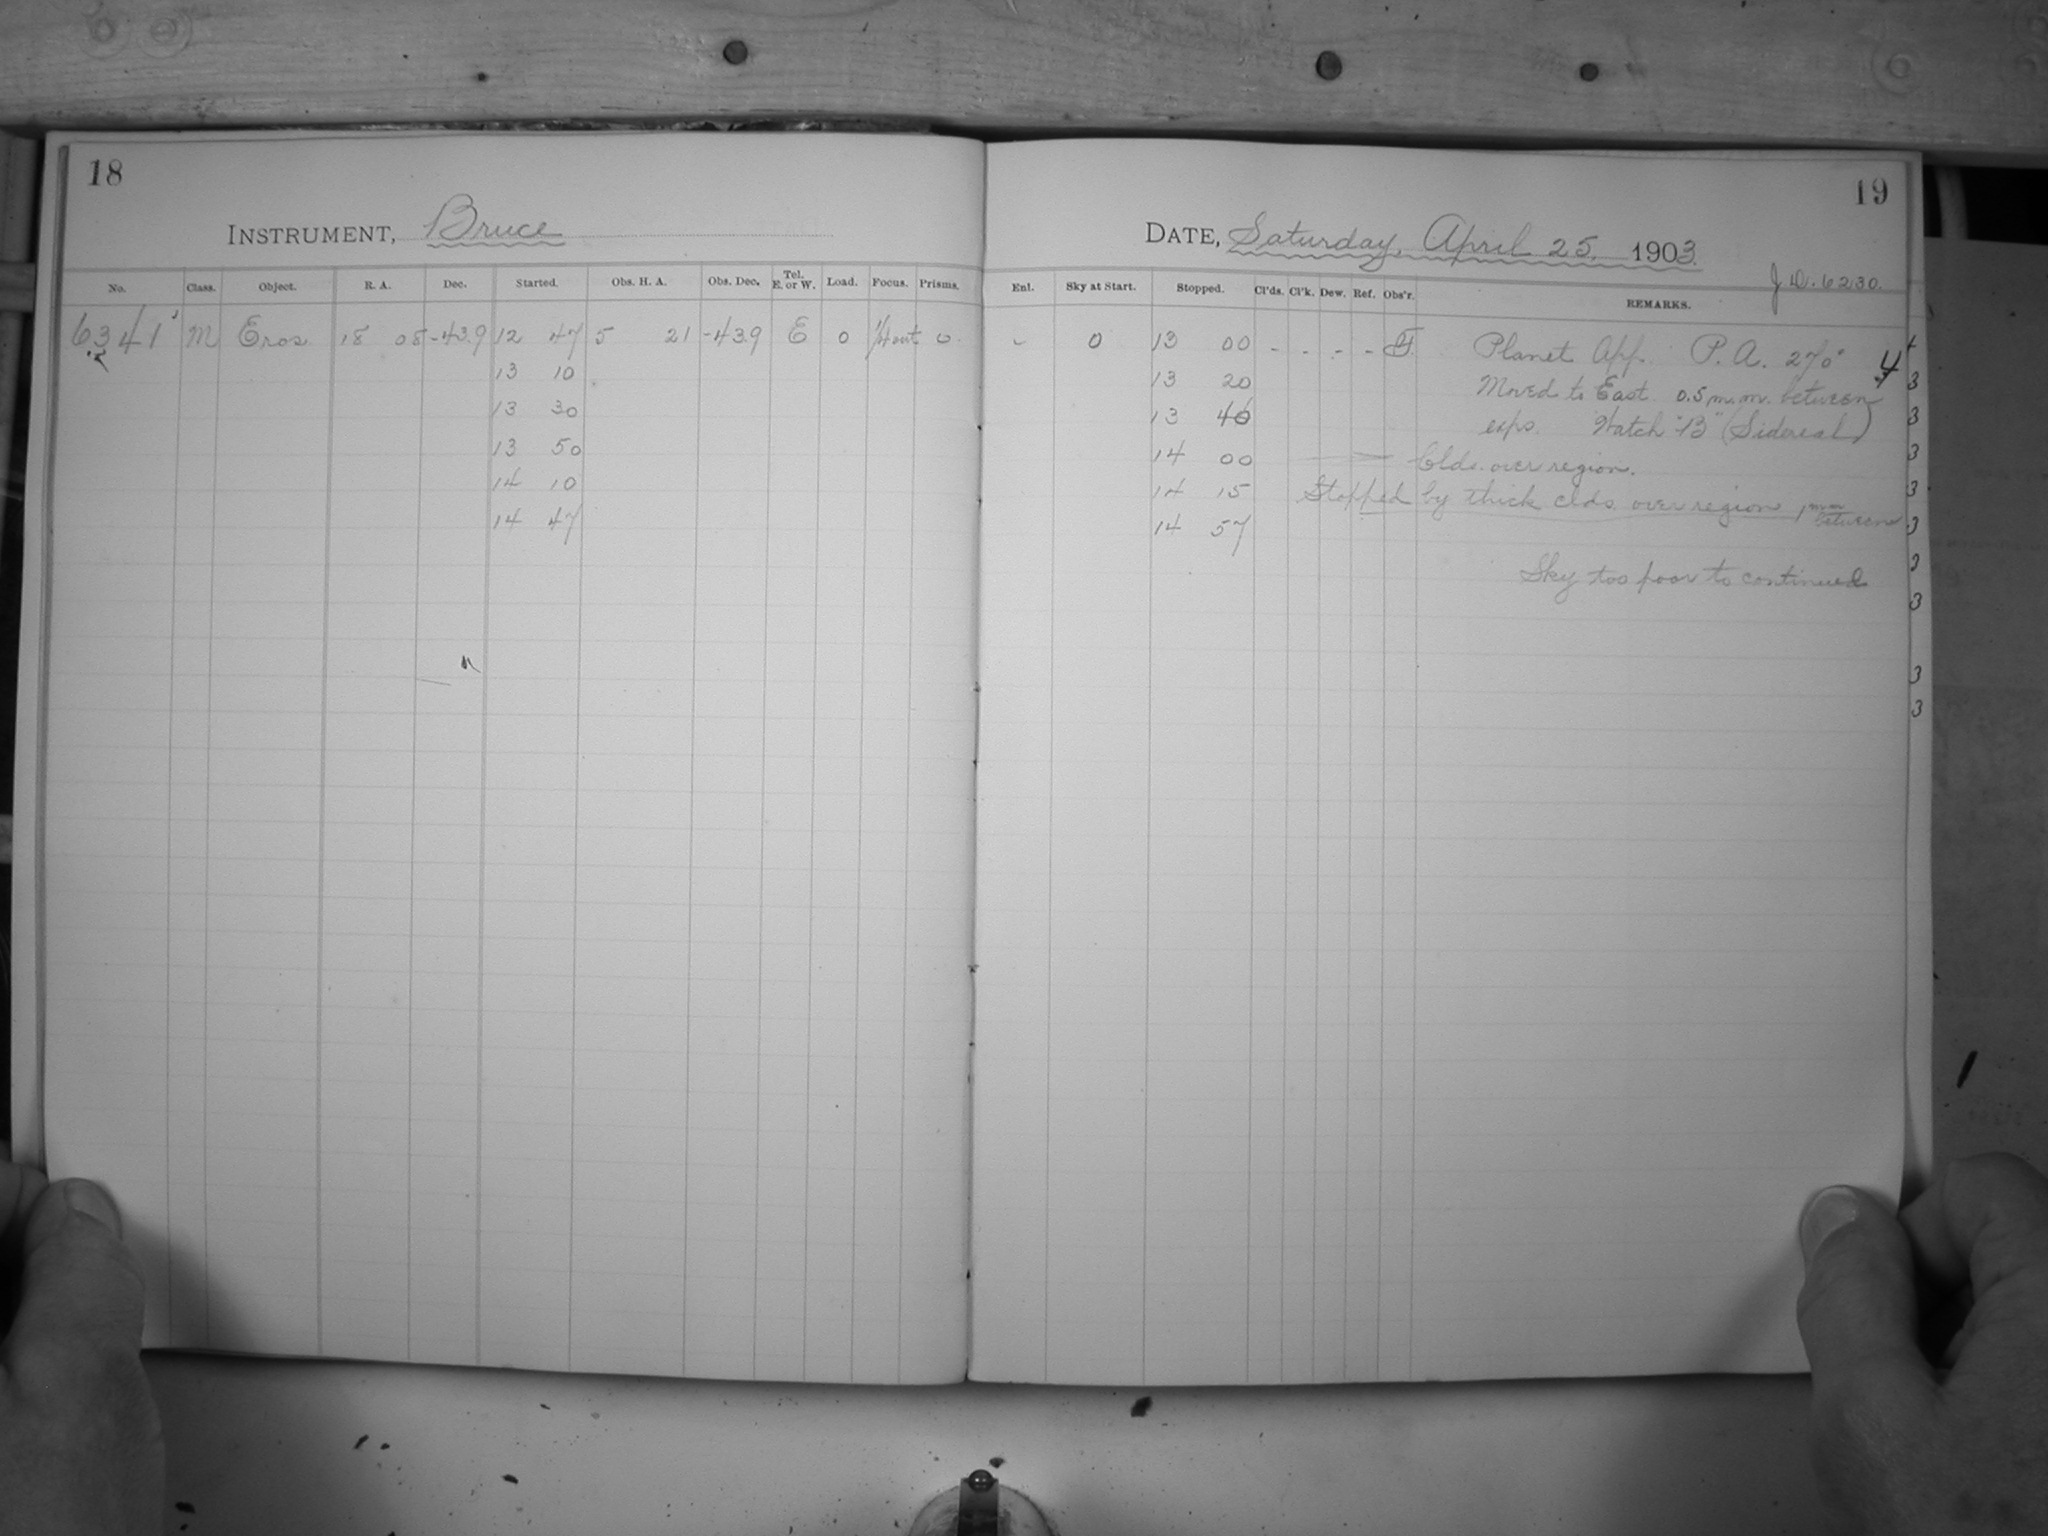 18
INSTRUMENT, Bruce
No. Class. Object. R. A. Dec. Started. Obs. H. A. Obs. Dec. Tel. E. or W. Load. Focus. Prisms.
6341 M Eros 18 08 -43.9 12 47 5 21 -43.9 E 0 out 0
13 10
13 30
13 50
14 10
14 47
19
DATE, Saturday, April 25, 1903.
J.D. 6230.
Enl. Sky at Start. Stopped. Cl'ds. Cl'k. Dew. Ref. Obs'r. REMARKS.
- 0 13 00 - - - - F. Planet App. P.A. 270° 4
13 20 Moved to East 0.5 m.m. between 3
13 40 exps. Watch "B" (Sidereal) 3
14 00 Clds. over region. 3
14 15 Stopped by thick clds. over region 1mm between 3
14 57 3
Sky too poor to continued
3
3
3
3